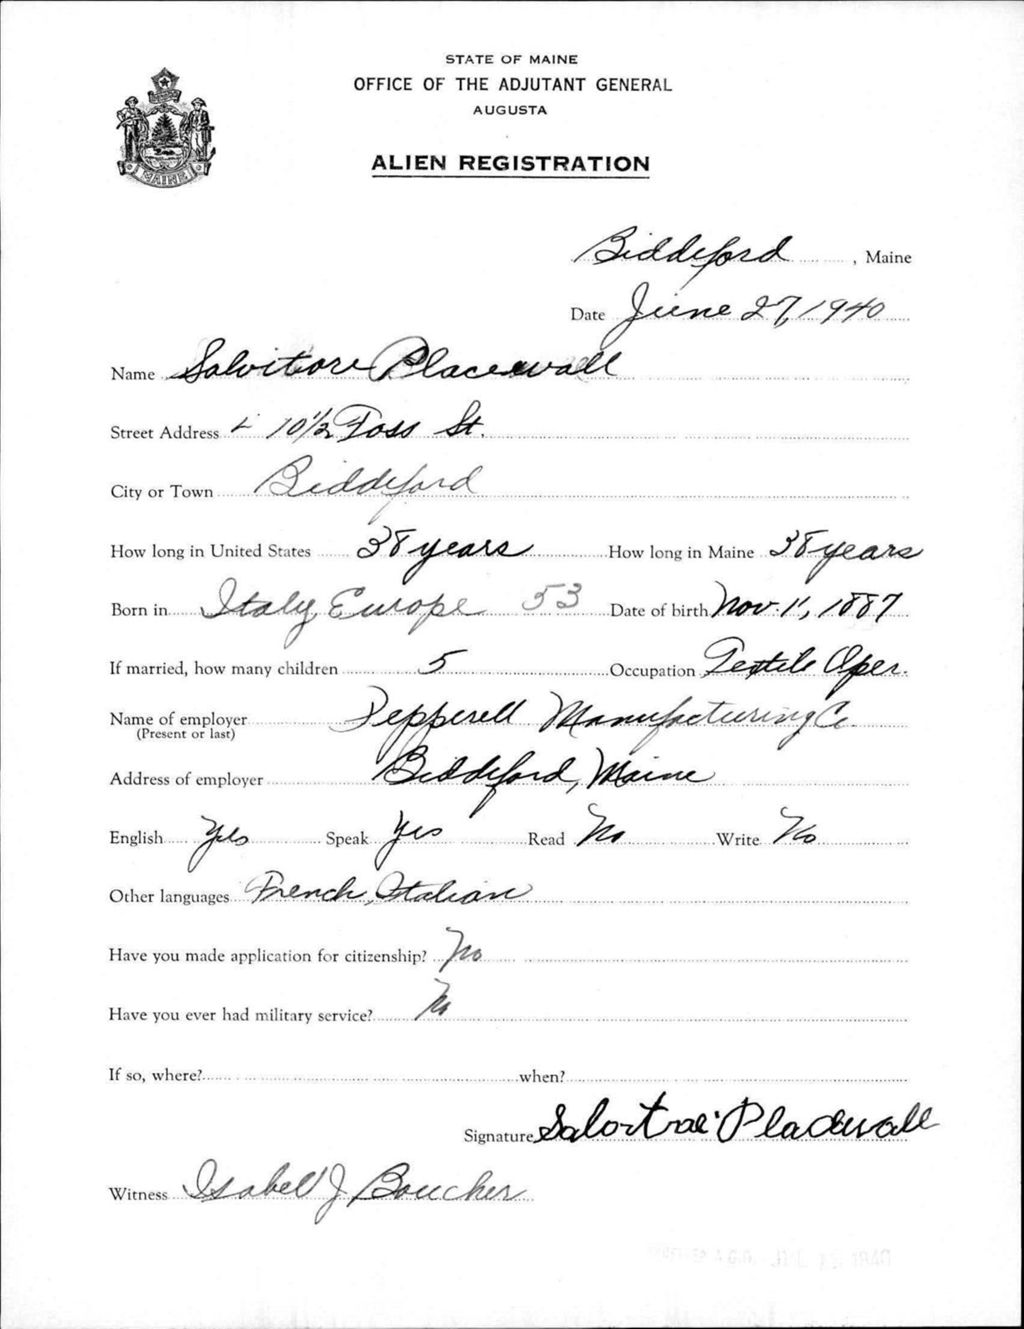 STATE OF MAINE
OFFICE OF THE ADJUTANT GENERAL
AUGUSTA
ALIEN REGISTRATION
MAINE
Biddeford, Maine
Date June 27, 1940
Name Salvitore Placewall
Street Address 10½ Foss St.
City or Town Biddeford
How long in United States 38 years How long in Maine 38 years
Born in Italy, Europe 53 Date of birth Nov. 1, 1887
If married, how many children 5 Occupation Textile Oper.
Name of employer Pepperell Manufacturing Co.
(Present or last)
Address of employer Biddeford, Maine
English Yes Speak Yes Read No Write No
Other languages French, Italian
Have you made application for citizenship? No
Have you ever had military service? No
If so, where? when?
Signature
Witness Isabel J Boucher